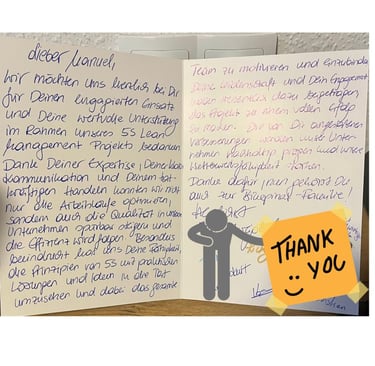 Lieber Manuel,
Wir möchten uns herzlich bei Dir
für Deinen engagierten Einsatz
und Deine wertvolle Unterstützung
im Rahmen unseres 5S Lean
Management Projekts bedanken
Dank Deiner Expertise, Deiner
Kommunikation und Deinem tat-
kräftigen Handeln konnten wir nicht
nur die Arbeitsabläufe optimieren,
sondern auch die Qualität in unserem
Unternehmen spürbar steigern und
die Effizienz Besonders
beeindruckt hat uns Deine Fähigkeit,
die Prinzipien von 5S mit praktischen
Lösungen und Ideen in die Tat
umzusetzen und dabei das gesamte
Team zu motivieren und einzubinden
Deine Leidenschaft und Dein Engagement
haben dazu beigetragen,
das Projekt zu einem vollen Erfolg
zu machen. Die von Dir angestoßenen
Verbesserungen werden unser Unter-
nehmen nachhaltig prägen und unsere
Wettbewerbsfähigkeit stärken.
Danke dafür, nun gehörst Du
auch zur Familie!
THANK
YOU